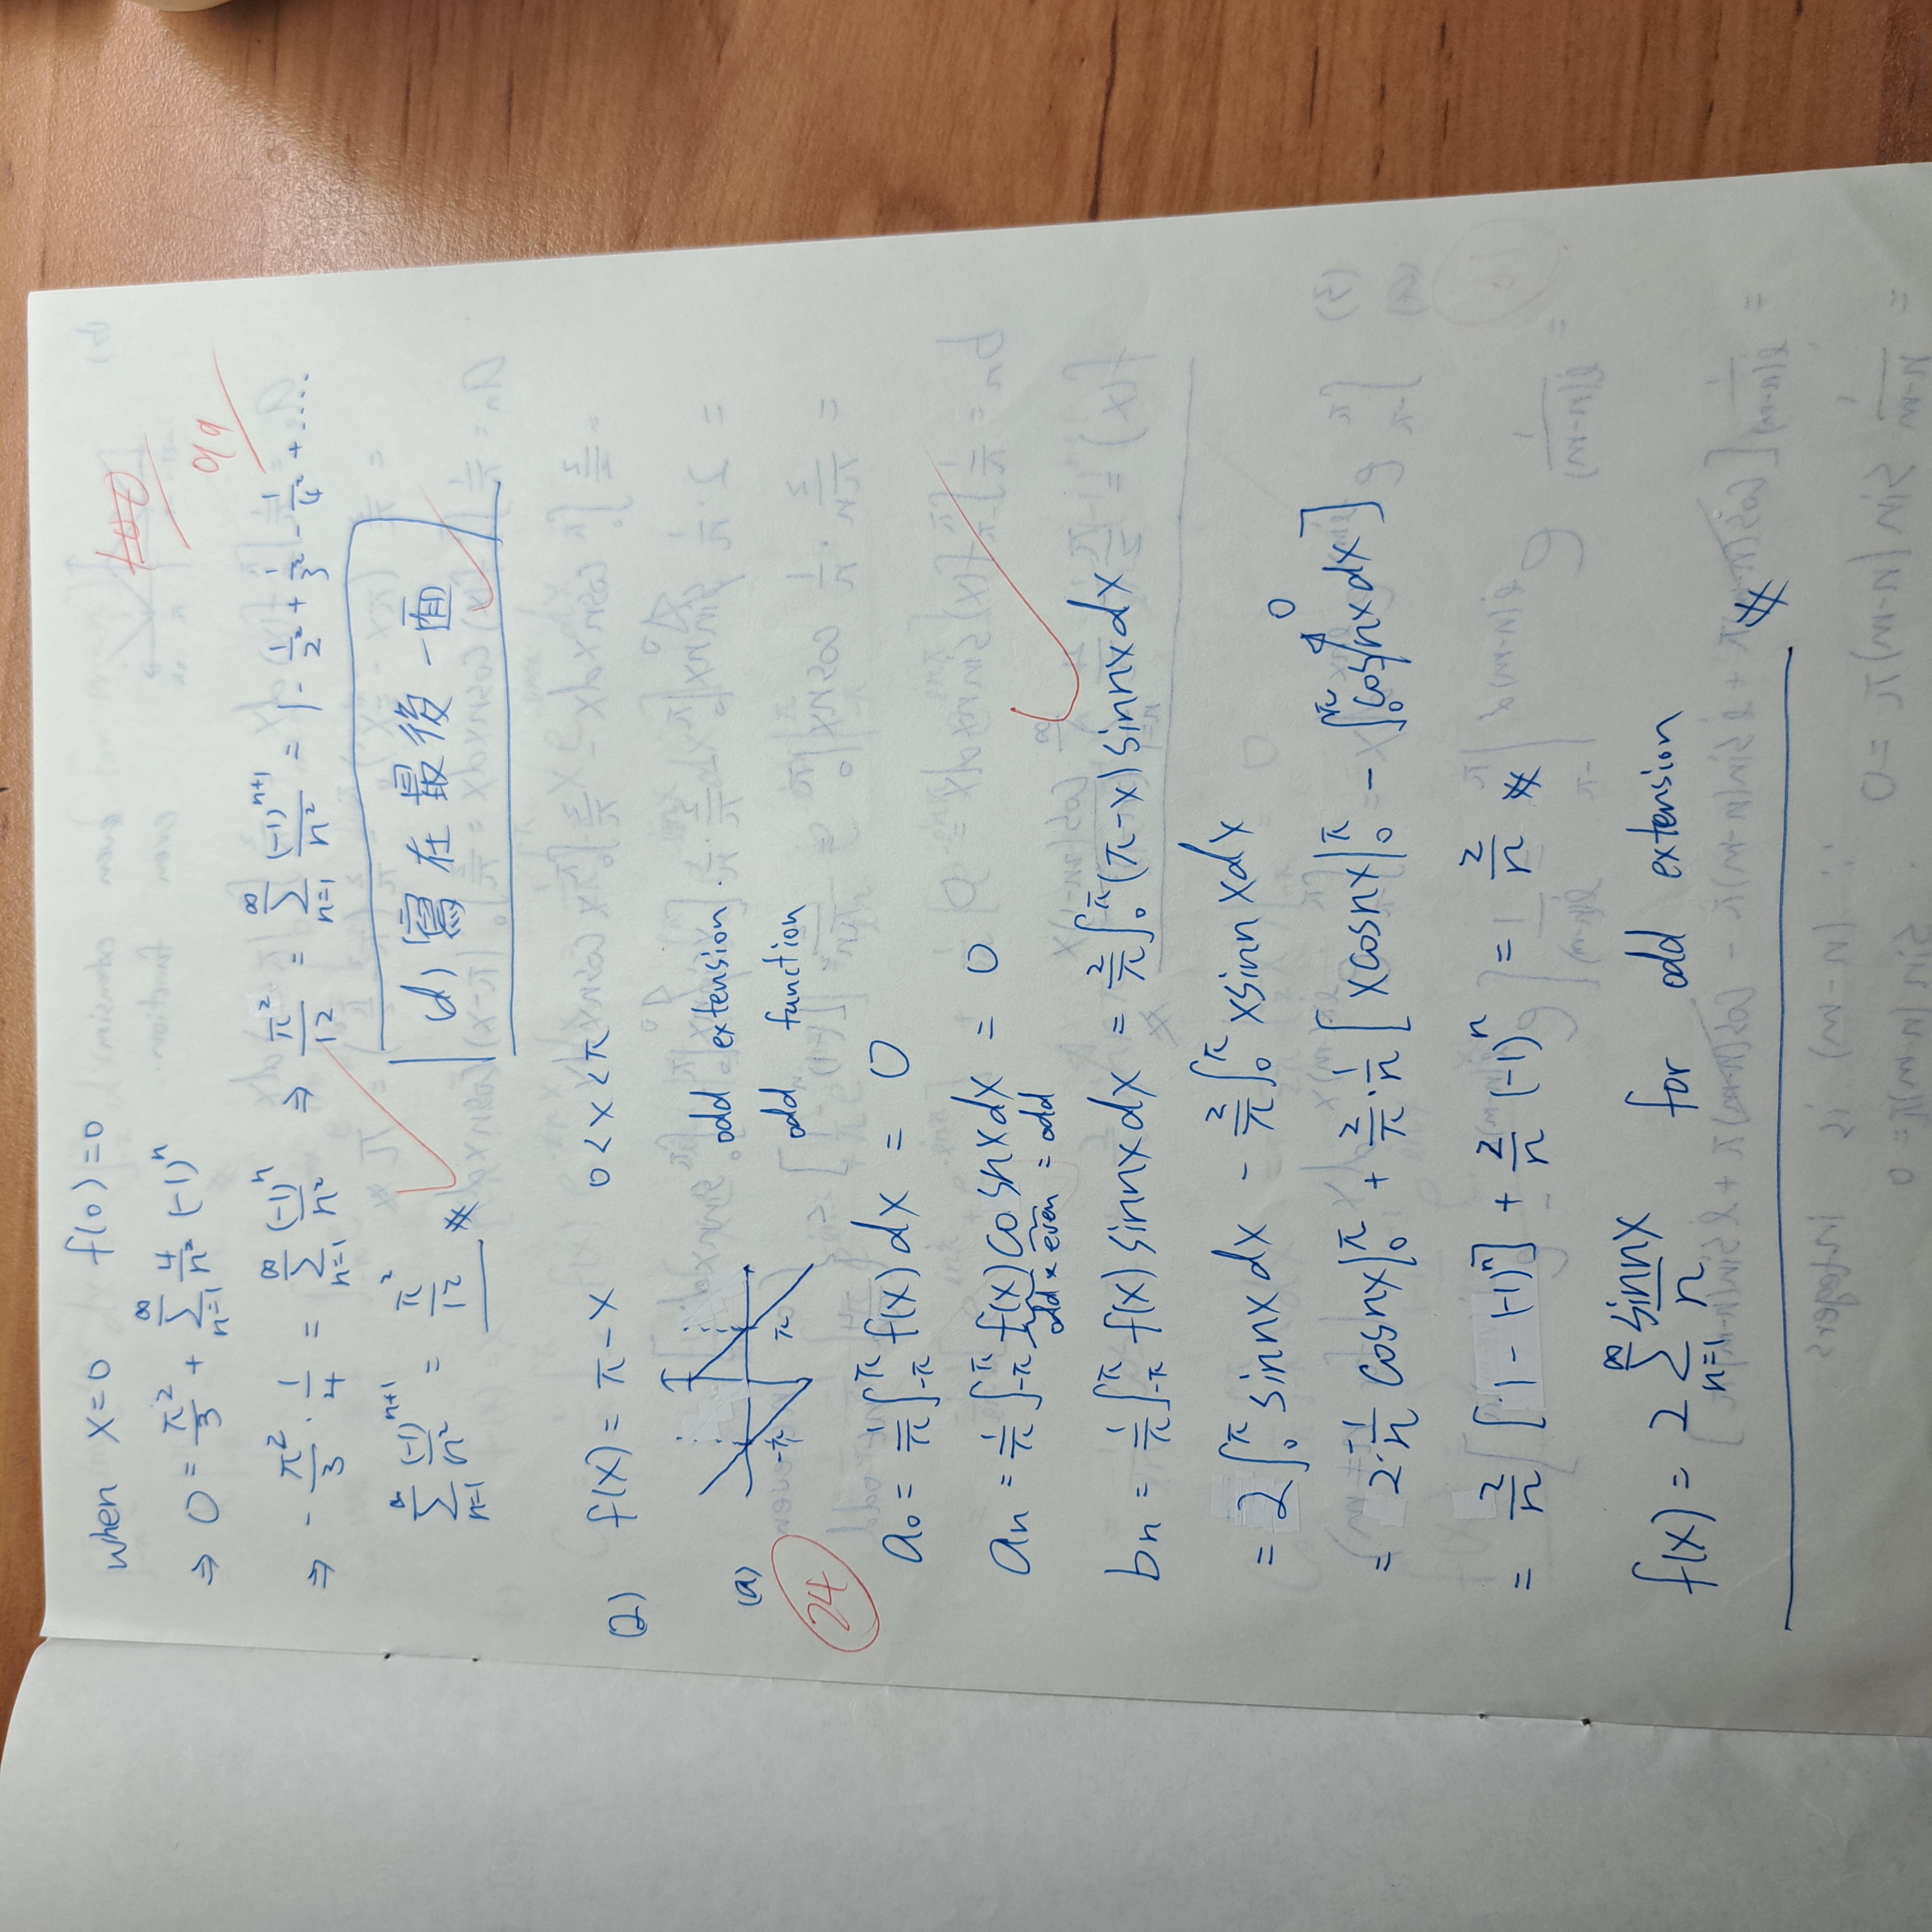 when x=0 f(0)=0
⇒ 0 = π²/3 + ∑_{n=1}^{∞} 4/n² (-1)ⁿ
⇒ -π²/3 · 1/4 = ∑_{n=1}^{∞} (-1)ⁿ/n² ⇒ π²/12 = ∑_{n=1}^{∞} (-1)^{n+1}/n² = 1 - 1/2² + 1/3² - 1/4² + .....
∑_{n=1}^{∞} (-1)^{n+1}/n² = π²/12 #
(d) 寫在最後一面
(2) f(x) = π - x 0<x<π
(a) odd extension.
-π π
odd function
24
a₀ = 1/π ∫_{-π}^{π} f(x) dx = 0
aₙ = 1/π ∫_{-π}^{π} f(x) cosnx dx = 0
odd × even = odd
bₙ = 1/π ∫_{-π}^{π} f(x) sinnx dx = 2/π ∫_0^π (π-x) sinnx dx
= 2 ∫_0^π sinnx dx - 2/π ∫_0^π x sinnx dx
= 2 · -1/n cosnx |_0^π + 2/π · 1/n [ x cosnx |_0^π - ∫_0^π cosnx dx ] 0
= 2/n [1 - (-1)ⁿ] + 2/n (-1)ⁿ = 2/n #
f(x) = 2 ∑_{n=1}^{∞} sinnx/n for odd extension #